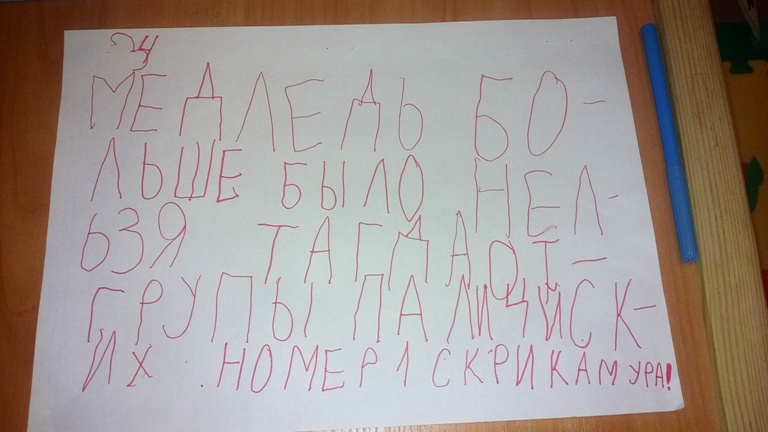 34
МЕДЛЕДЬ БО-
ЛЬШЕ БЫЛО НЕЛ-
ЬЗЯ ТАГДА ОТ-
ГРУПЫ ПАЛИЦИЙСК-
ИХ .НОМЕР 1 С КРИКАМ УРА!